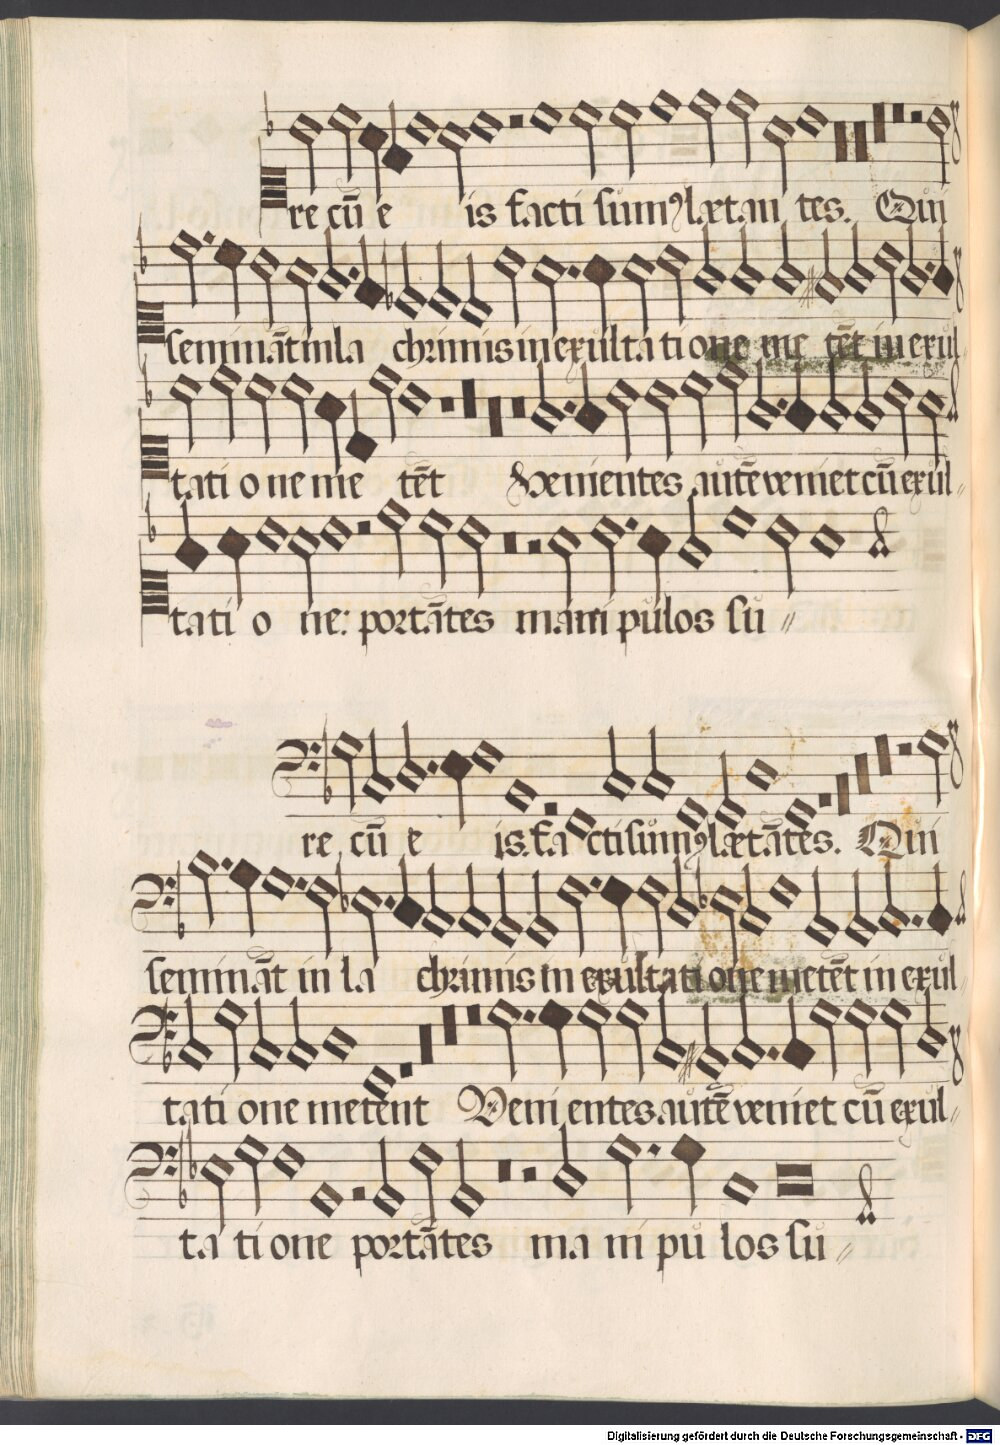 re cū e is facti sumꝰ lætan tes. Qui
seminātin la chrimis in exulta tione me tēt in exul
tati o ne me tēt Venientes autē veniet cū exul
tati o ne: portātes mani pulos su
re cū e is. fa cti sumꝰ lætātes. Qui
semināt in la chrimis in exultati one metēt in exul
tati one metent Veni entes. autē veniet cū exul
ta ti one portātes ma ni pu los su
Digitalisierung gefördert durch die Deutsche Forschungsgemeinschaft - DFG